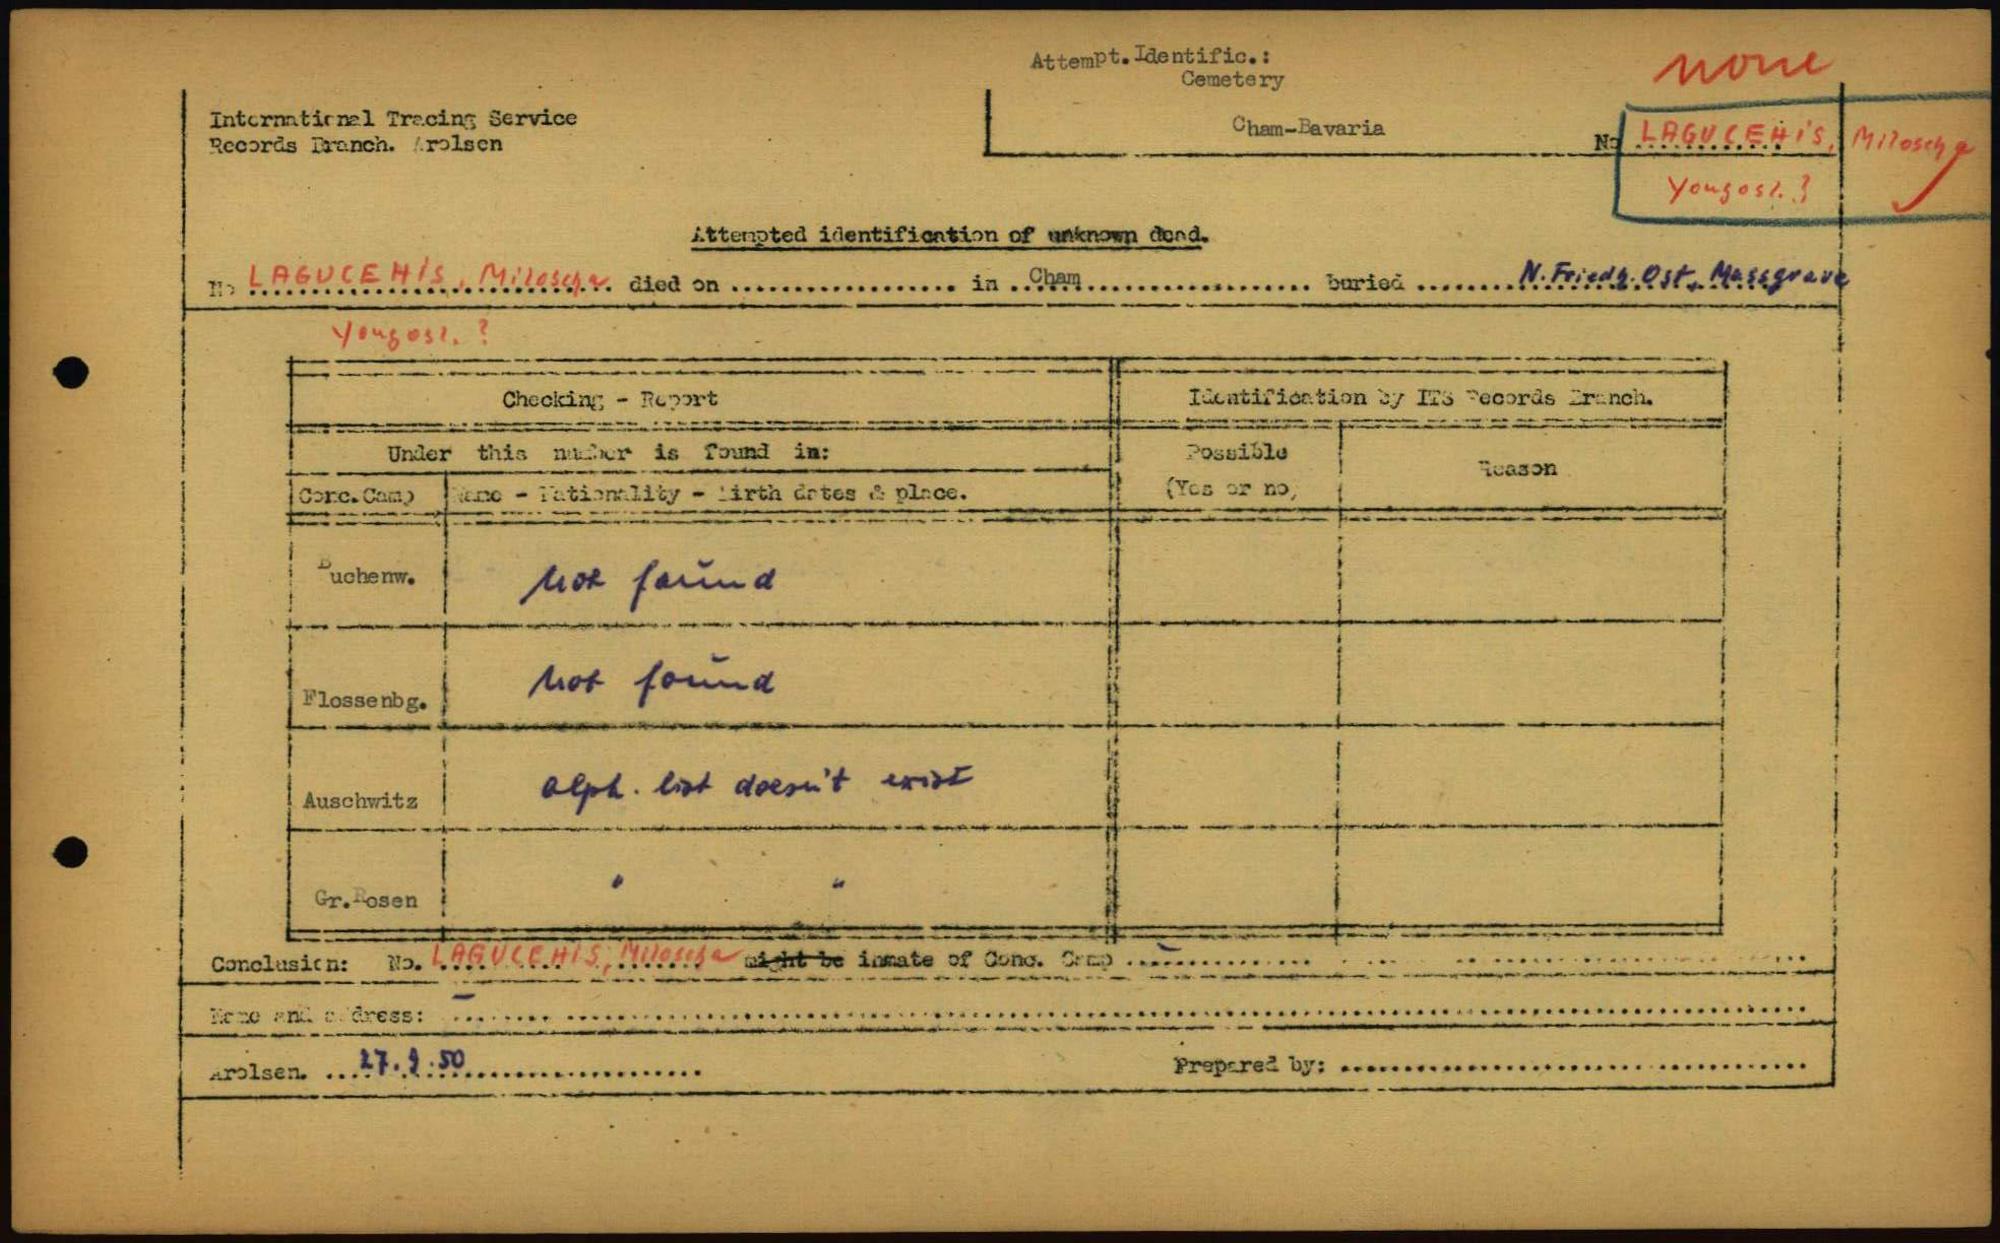 Attempt.Identific.:
Cemetery
none
International Tracing Service
Records Branch. Arolsen
Cham-Bavaria
No LAGUCEHIS, Miloscha
Yougosl. ?
Attempted identification of unknown dead.
No LAGUCEHIS, Miloscha died on .................. in ..Cham.................. buried ........N.Friedh.Ost, Massgrave
Yougosl. ?
Checking - Report
Identification by ITS Records Branch.
Under this number is found in:
Possible
(Yes or no)
Reason
Conc.Camp
Name - Nationality - Birth dates & place.
Buchenw.
not found
Flossenbg.
not found
Auschwitz
alph. list doesn't exist
Gr.Rosen
" "
Conclusion: No. LAGUCEHIS, Miloscha might be inmate of Conc. Camp ..-..............
Name and address: -........................
Arolsen. ....27.9.50........................
Prepared by: ....................................